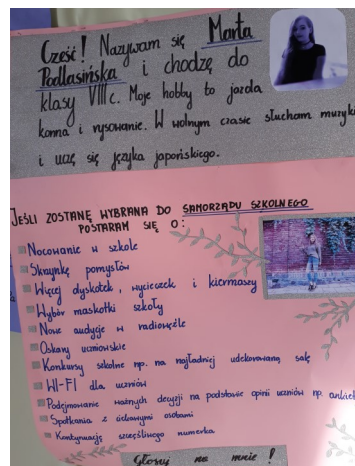 Cześć! Nazywam się Marta
Podlasińska i chodzę do
klasy VIII c. Moje hobby to jazda
konna i rysowanie. W wolnym czasie słucham muzyki
i uczę się języka japońskiego.
JEŚLI ZOSTANĘ WYBRANA DO SAMORZĄDU SZKOLNEGO
POSTARAM SIĘ O:
Nocowanie w szkole
Skrzynkę pomysłów
Więcej dyskotek, wycieczek i kiermaszy
Wybór maskotki szkoły
Nowe audycje w radiowęźle
Oskary uczniowskie
Konkursy szkolne np. na najładniej udekorowaną salę
WI-FI dla uczniów
Podejmowanie ważnych decyzji na podstawie opinii uczniów np. ankiet
Spotkania z ciekawymi osobami
Kontynuację szczęśliwego numerka
Głosuj na mnie!